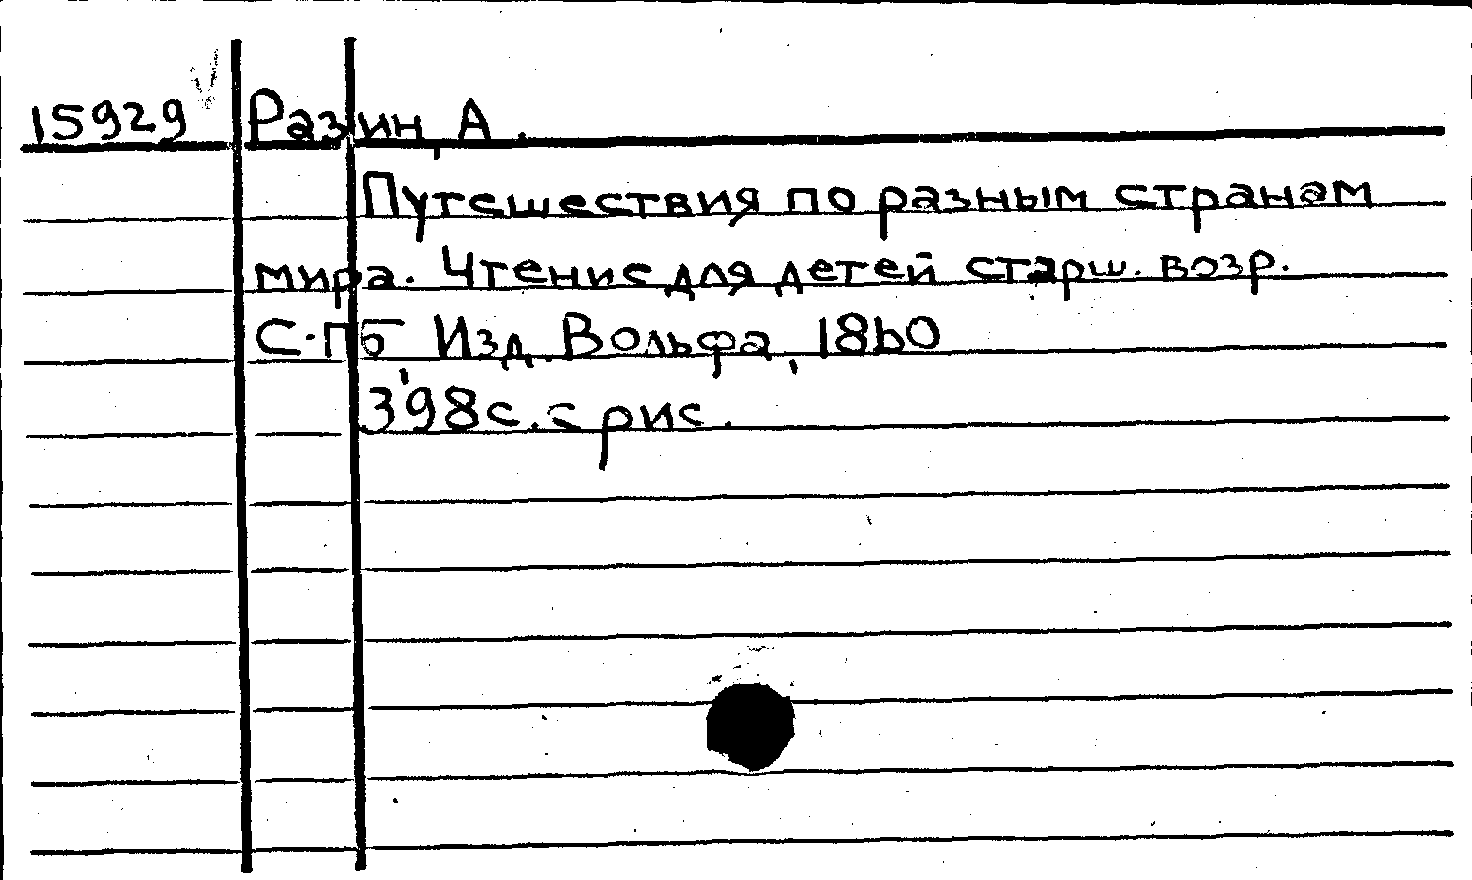 15929 Разин, А.
Путешествия по разным странам
мира. Чтение для детей старш. возр.
С-Пб Изд. Вольфа, 1860
398 с. с рис.